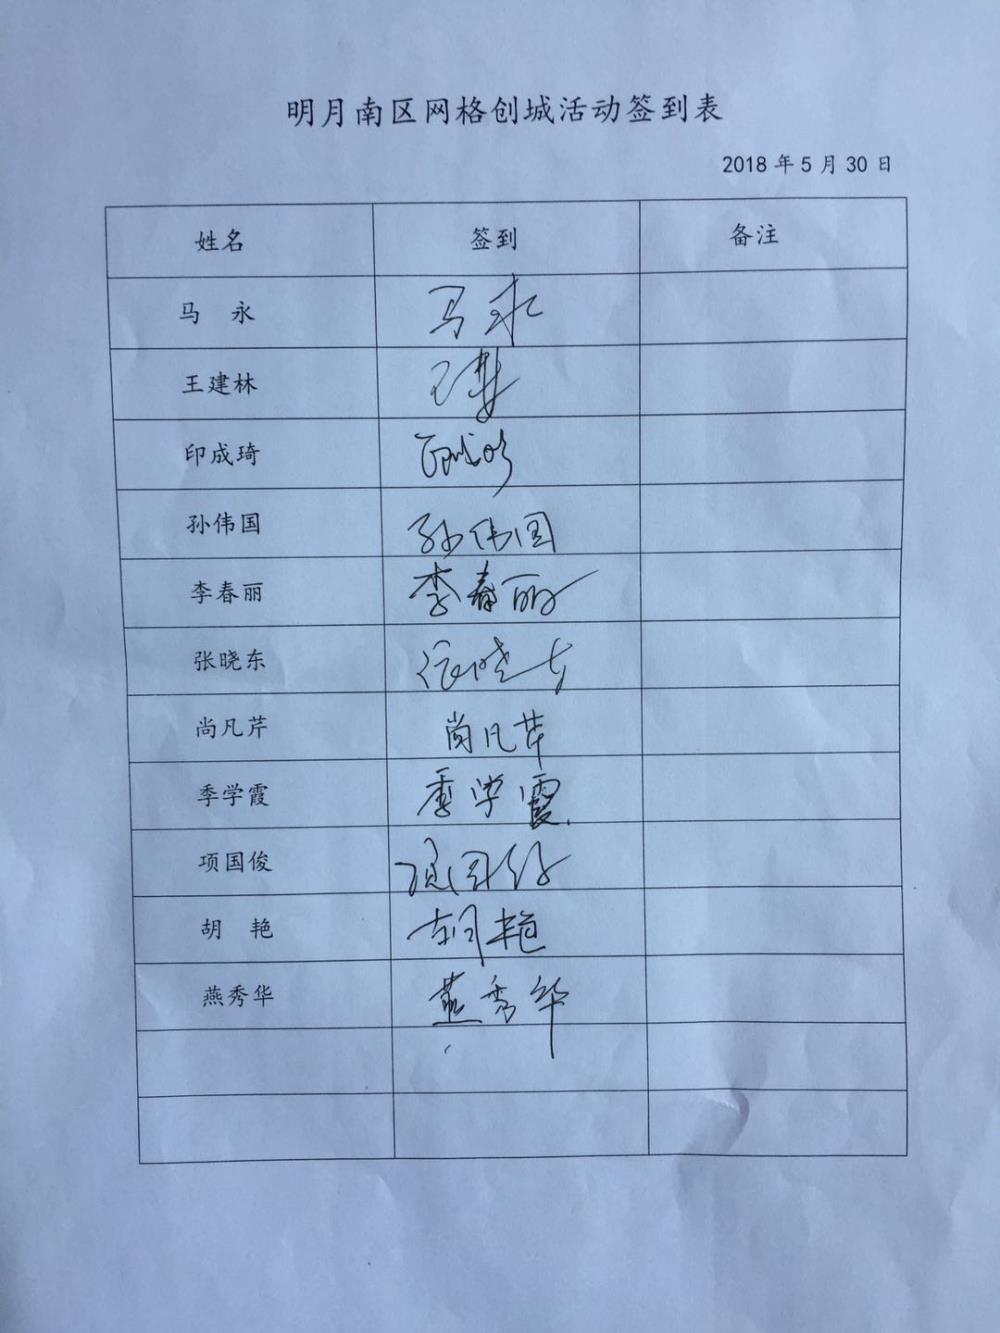 明月南区网格创城活动签到表
2018 年 5 月 30 日
姓名 签到 备注
马 永 马永
王建林 王建林
印成琦 印成琦
孙伟国 孙伟国
李春丽 李春丽
张晓东 张晓东
尚凡芹 尚凡芹
季学霞 季学霞
项国俊 项国俊
胡 艳 胡艳
燕秀华 燕秀华